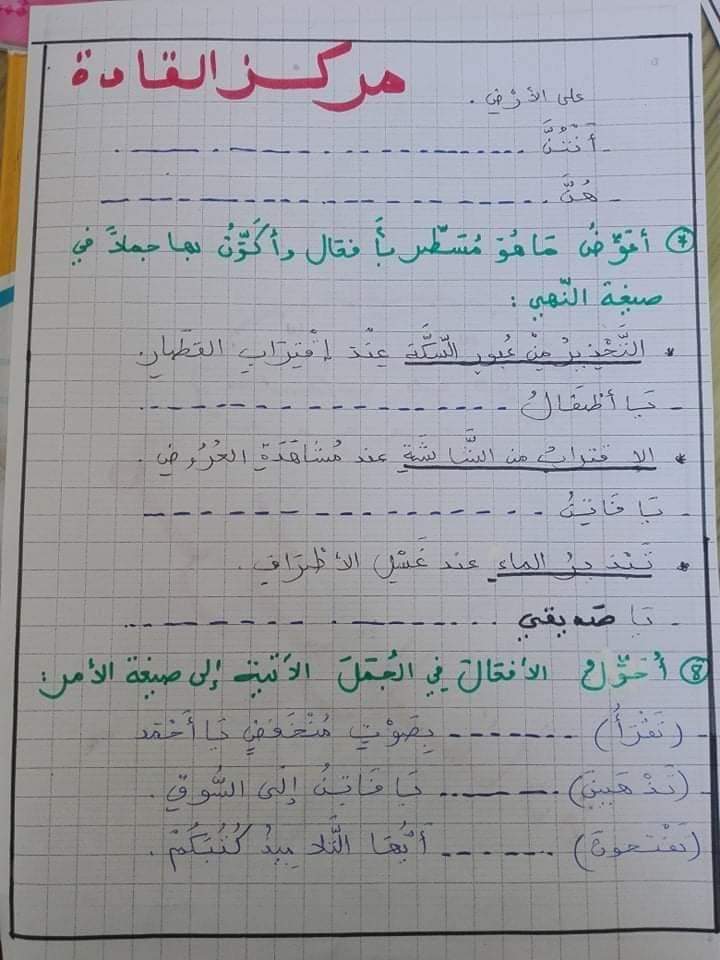 مركز القادة
على الأرْضِ .
- أَنْتُنَّ --------------- .
- هُنَّ ---------------
* أعَوِّضُ مَا هُوَ مُسَطَّر بأَفعال وأُكَوِّنُ بها جملاً في
صيغة النّهي :
* التَّحْذِيرُ مِنْ عُبورِ السِّكَّةِ عِنْدَ إقْتِرَابِ القطَارِ.
- يَا أطْفَالُ ---------------
* الاِقترابُ من الشَّاشَةِ عند مُشَاهَدَةِ العُرُوضِ .
- يَا فَاتِنُ ---------------
* تَبْذيرُ الماءِ عند غَسْلِ الأطْرَافِ .
- يَا صَديقي ---------------
8 أُحَوِّلُ الأفعَالَ في الجُمَلِ الآتية إلى صيغة الأمر :
- (تَقْرَأُ) ------- بِصَوْتٍ مُنْخَفَضٍ يَا أَحْمَد
- (تَذْهَبِينَ) ------- يَا فَاتِنُ إلَى السُّوقِ .
(تَفْتَحونَ) ------- أَيُّهَا التَّلَامِيذُ كُتُبَكُمْ .